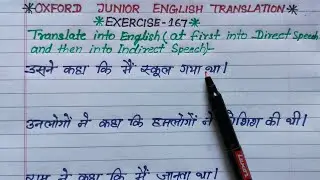 *OXFORD JUNIOR ENGLISH TRANSLATION*
*EXERCISE-167*
Translate into English (at first into Direct Speech
and then into Indirect Speech)-
उसने कहा कि मैं स्कूल गया था।
उनलोगों ने कहा कि हमलोगों ने कोशिश की थी।
ने कहा कि मैं जानता था।